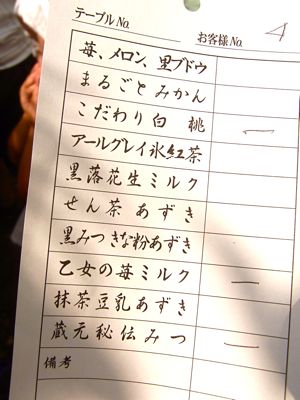 テーブルNo. お客様No. 4
苺、メロン、里ブドウ
まるごとみかん
こだわり白 桃 一
アールグレイ氷紅茶
黒落花生ミルク
せん茶 あずき
黒みつきな粉あずき
乙女の苺ミルク 一
抹茶豆乳あずき
蔵元秘伝みつ 一
備考